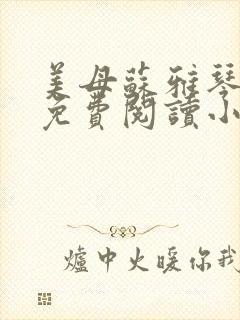 美母蘇雅琴
免費閱讀小
爐中火暖你我